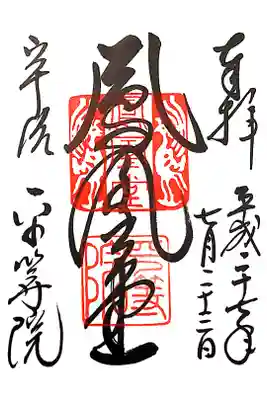 奉拝
平成二十六年
七月二十二日
鳳凰堂
鳳凰堂
宇治
平等院